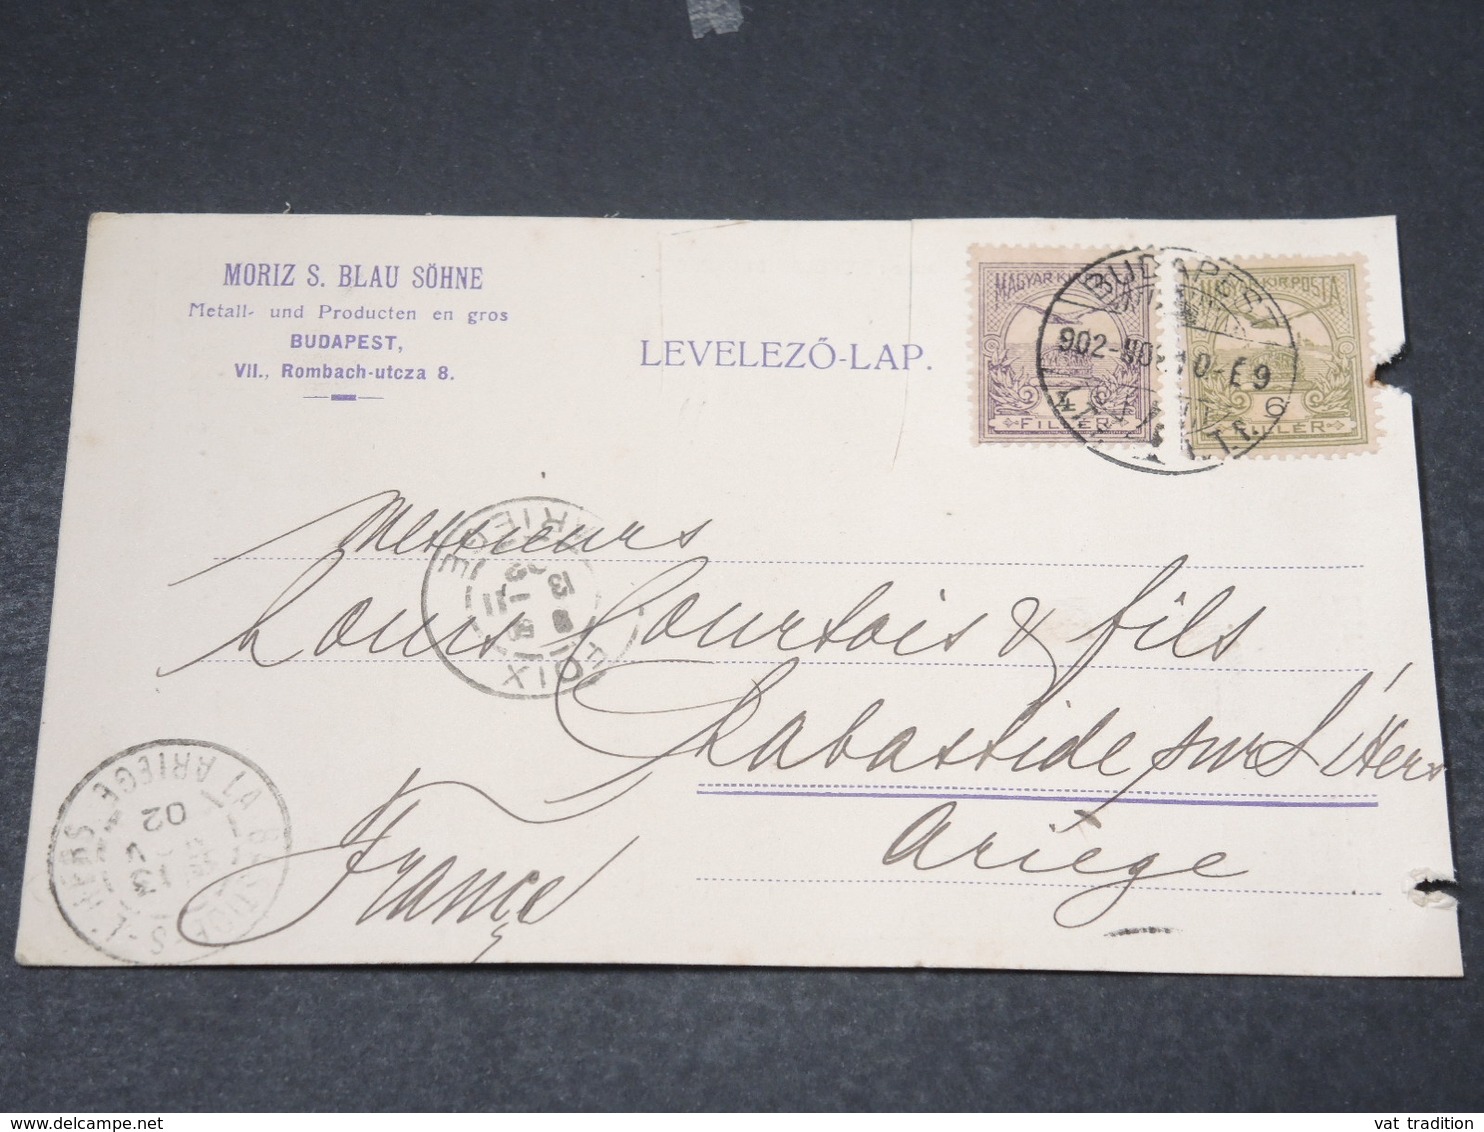 MORIZ S. BLAU SÖHNE
Metall- und Producten en gros
BUDAPEST,
VII., Rombach-utcza 8.
LEVELEZŐ-LAP.
MAGYAR·KIR·POSTA
4
FILLÉR
MAGYAR·KIR·POSTA
6
FILLÉR
BUDAPEST
902
10-E9
Messieurs
Louis Courtois & fils
Labastide sur L'Hers
Ariège
France
FOIX
ARIEGE
13
LABASTIDE-S-L'HERS
ARIEGE
13
02
vat tradition